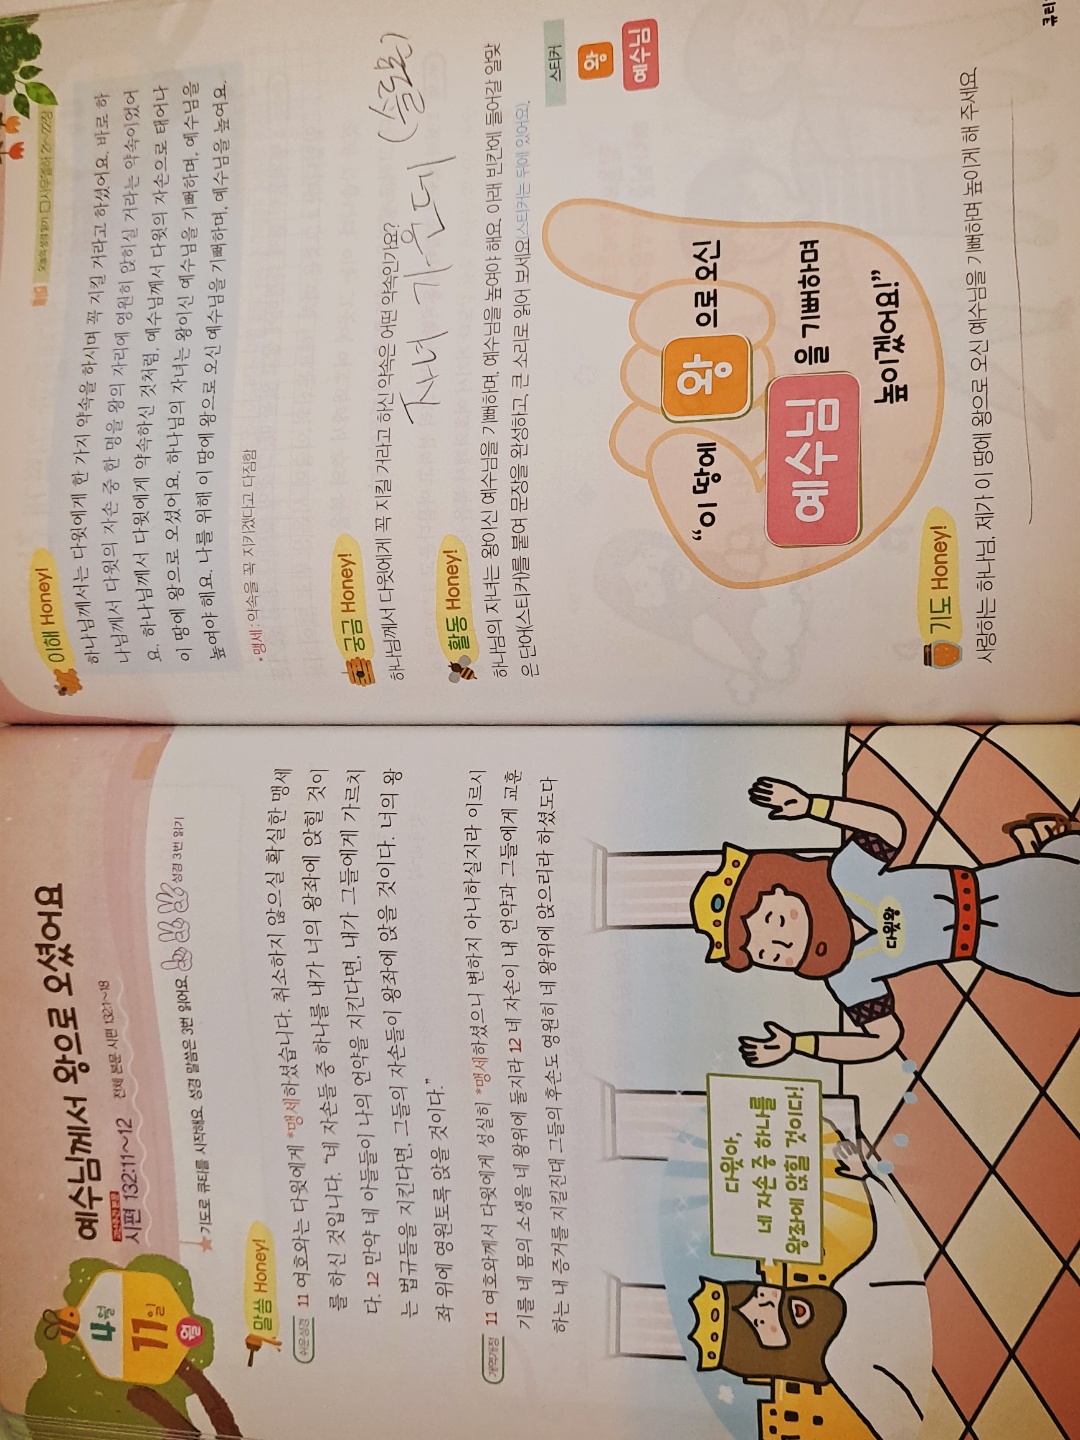 4월
11일
월
예수님께서 왕으로 오셨어요
시편 132:11~12 전체 본문 시편 132:1~18
★기도로 큐티를 시작해요. 성경 말씀은 3번 읽어요.
성경 3번 읽기
말씀 Honey!
쉬운성경
11 여호와는 다윗에게 *맹세하셨습니다. 취소하지 않으실 확실한 맹세
를 하신 것입니다. “네 자손들 중 하나를 내가 너의 왕좌에 앉힐 것이
다. 12 만약 네 아들들이 나의 언약을 지킨다면, 내가 그들에게 가르치
는 법규들을 지킨다면, 그들의 자손들이 왕좌에 앉을 것이다. 너의 왕
좌 위에 영원토록 앉을 것이다.”
개역개정
11 여호와께서 다윗에게 성실히 *맹세하셨으니 변하지 아니하실지라 이르시
기를 네 몸의 소생을 네 왕위에 둘지라 12 네 자손이 내 언약과 그들에게 교훈
하는 내 증거를 지킬진대 그들의 후손도 영원히 네 왕위에 앉으리라 하셨도다
다윗아,
네 자손 중 하나를
왕좌에 앉힐 것이다!
다윗왕
이해 Honey!
하나님께서는 다윗에게 한 가지 약속을 하시며 꼭 지킬 거라고 하셨어요. 바로 하
나님께서 다윗의 자손 중 한 명을 왕의 자리에 영원히 앉히실 거라는 약속이었어
요. 하나님께서 다윗에게 약속하신 것처럼, 예수님께서 다윗의 자손으로 태어나
이 땅에 왕으로 오셨어요. 하나님의 자녀는 왕이신 예수님을 기뻐하며, 예수님을
높여야 해요. 나를 위해 이 땅에 왕으로 오신 예수님을 기뻐하며, 예수님을 높여요.
*맹세: 약속을 꼭 지키겠다고 다짐함
궁금 Honey!
하나님께서 다윗에게 꼭 지킬 거라고 하신 약속은 어떤 약속인가요?
자녀 가운데 (솔로몬)
활동 Honey!
하나님의 자녀는 왕이신 예수님을 기뻐하며, 예수님을 높여야 해요. 아래 빈칸에 들어갈 알맞
은 단어(스티커)를 붙여 문장을 완성하고, 큰 소리로 읽어 보세요(스티커는 뒤에 있어요).
스티커
왕
예수님
“이 땅에 왕 으로 오신
예수님 을 기뻐하며
높이겠어요!”
기도 Honey!
사랑하는 하나님, 제가 이 땅에 왕으로 오신 예수님을 기뻐하며 높이게 해 주세요.